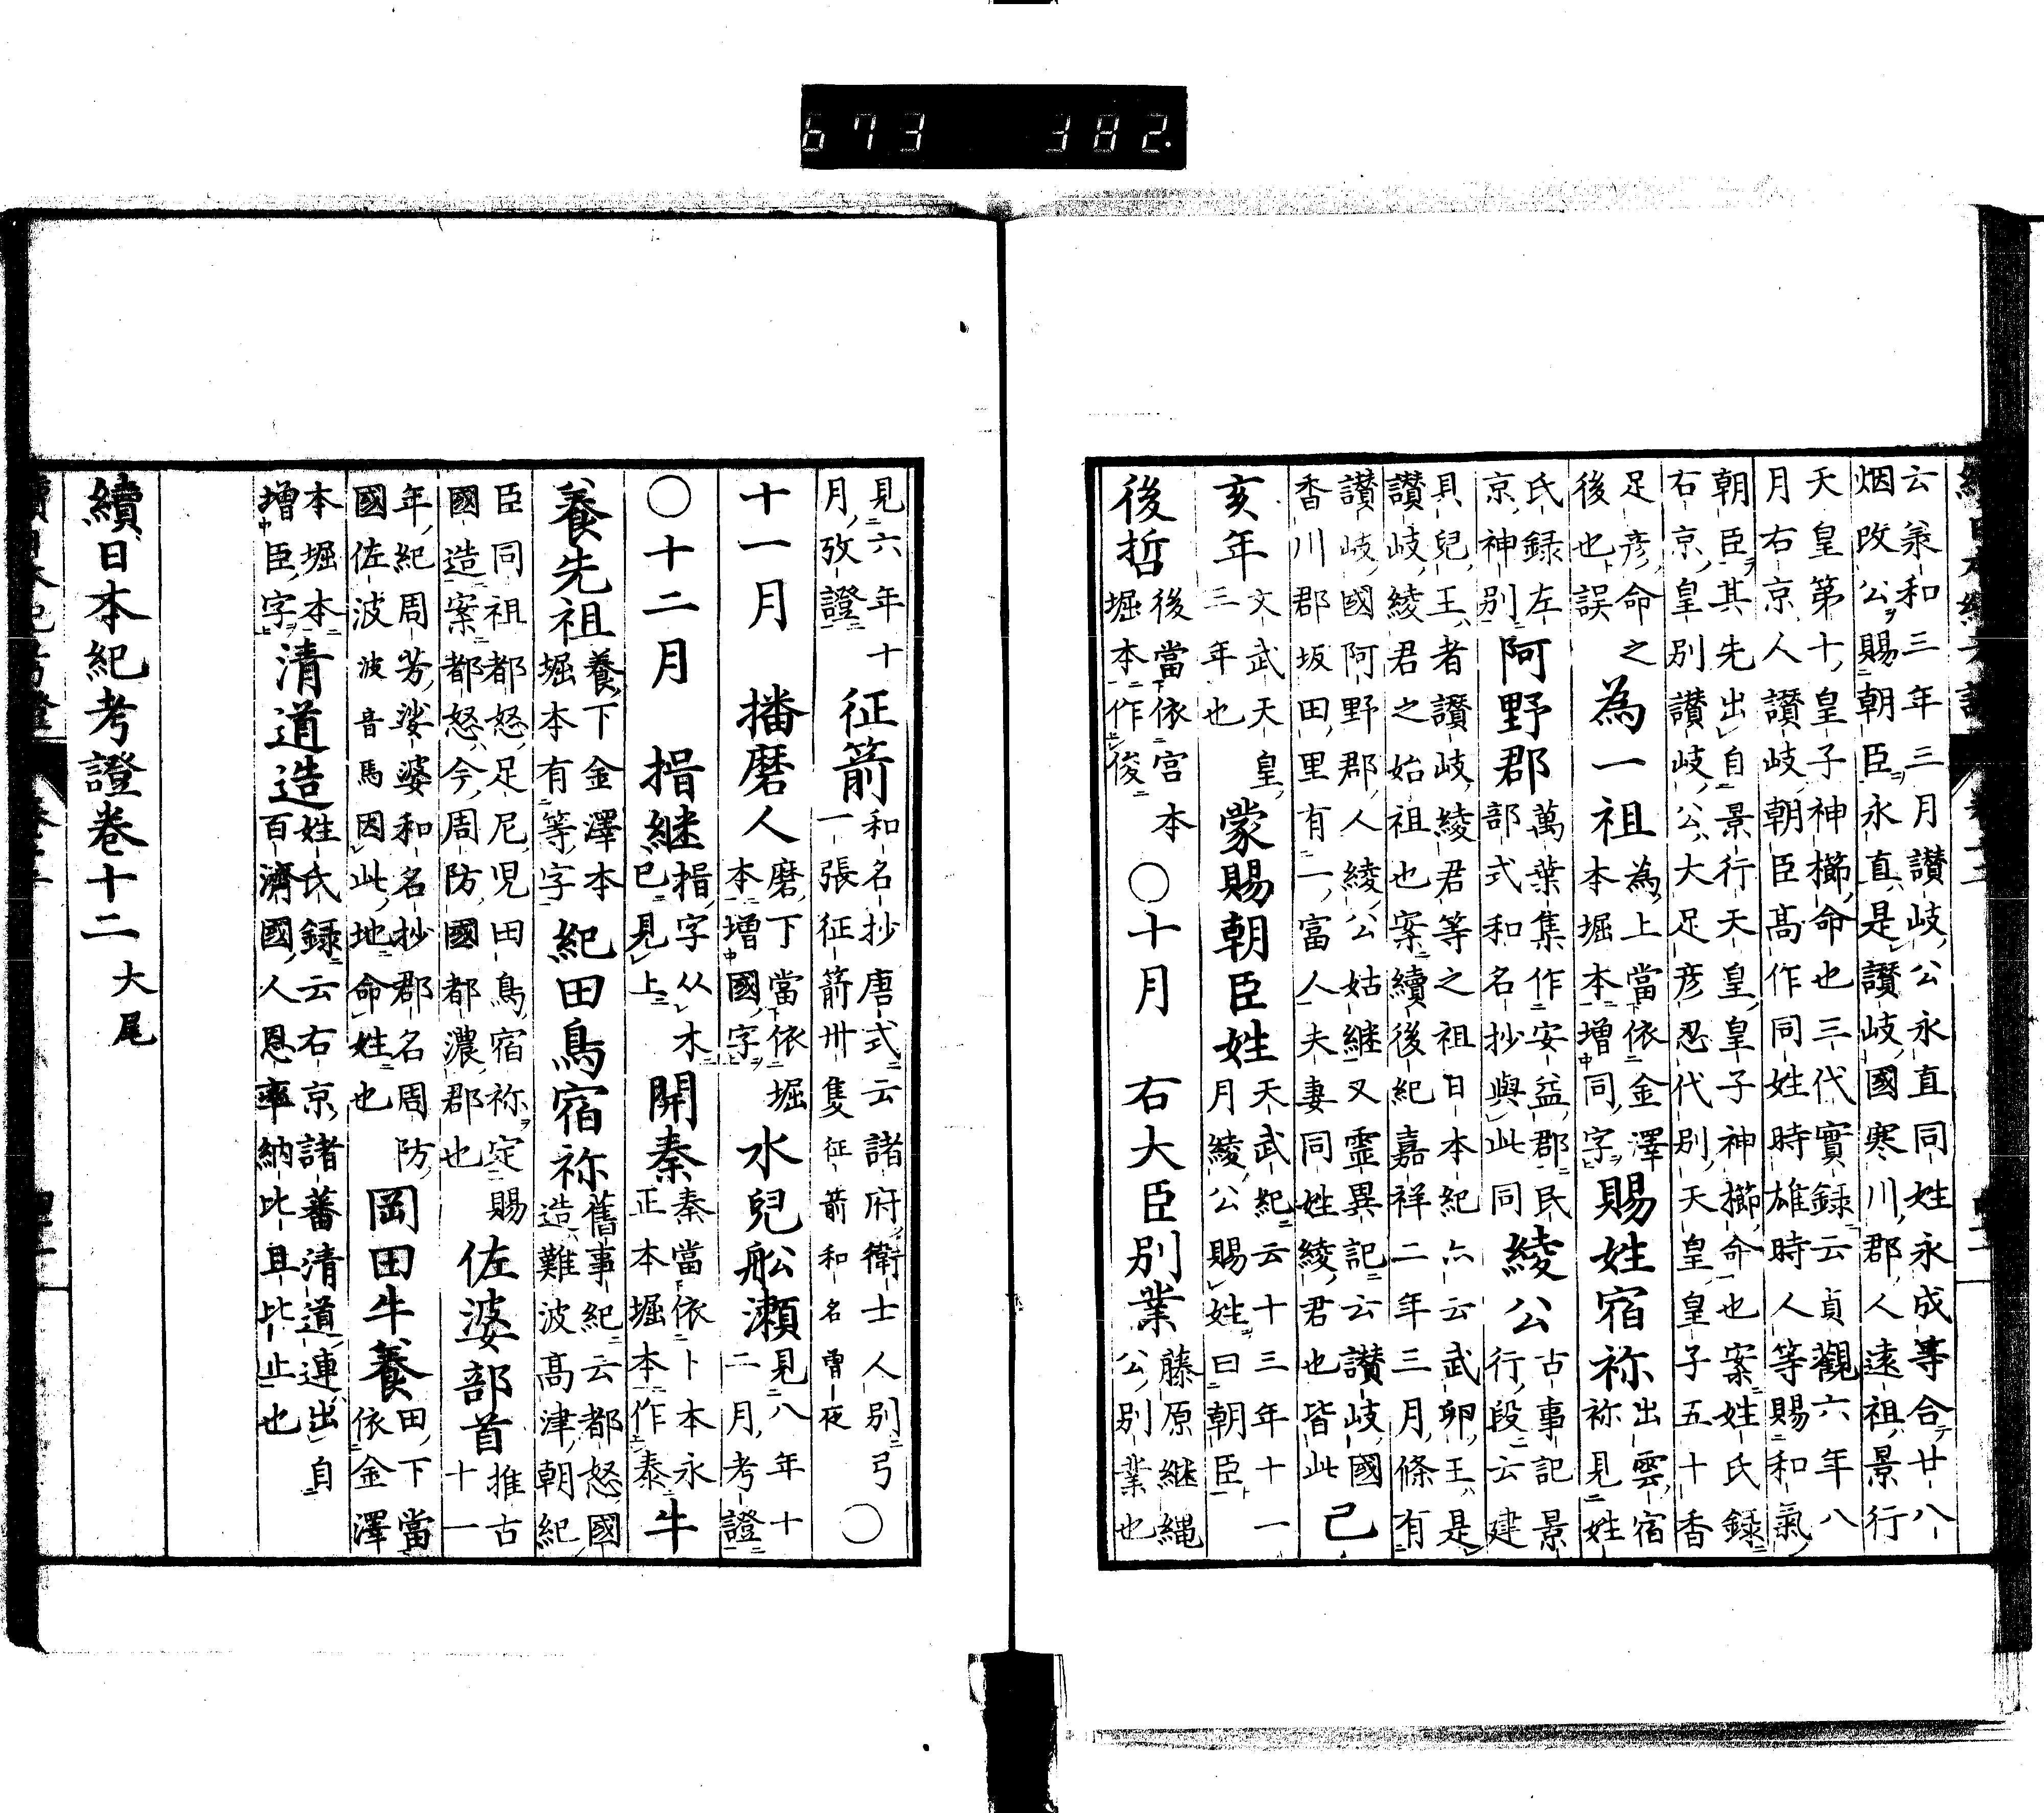 673 382.
云承和三年三月讃岐公永直同姓永成等合廿八
烟改公賜朝臣永直是讃岐國寒川郡人遠祖景行
天皇第十皇子神櫛命也三代實録云貞觀六年八
月右京人讃岐朝臣高作同姓時雄時人等賜和氣
朝臣其先出自景行天皇皇子神櫛命也案姓氏録
右京皇別讃岐公大足彦忍代別天皇皇子五十香
足彦命之
後也誤
為一祖
為上當依金澤
本堀本増同字
賜姓宿祢
出雲宿
祢見姓
氏録左
京神別
阿野郡
萬葉集作安益郡民
部式和名抄與此同
綾公
古事記景
行段云建
具兒王者讃岐綾君等之祖日本紀亦云武卵王是
讃岐綾君之始祖也案續後紀嘉祥二年三月條有
讃岐國阿野郡人綾公姑継又靈異記云讃岐國
香川郡坂田里有一富人夫妻同姓綾君也皆此
己
亥年
文武天皇
三年也
蒙賜朝臣姓
天武紀云十三年十一
月綾公賜姓曰朝臣
後哲
後當依宮本
堀本作俊
○十月 右大臣別業
藤原継縄
公別業也
見六年十
月攷證
征箭
和名抄唐式云諸府衛士人別弓
一張征箭卅隻征箭和名曾夜
○
十一月 播磨人
磨下當依堀
本増國字
水兒舩瀬
見八年十
二月考證
○十二月 揩継
揩字从木
已見上
開秦
秦當依卜本永
正本堀本作泰
牛
養先祖
養下金澤本
堀本有等字
紀田鳥宿祢
舊事紀云都怒國
造難波高津朝紀
臣同祖都怒足尼児田鳥宿祢定賜
國造案都怒今周防國都濃郡也
佐婆部首
推古
十一
年紀周芳娑婆和名抄郡名周防
國佐波波音馬因此地命姓也
岡田牛養
田下當
依金澤
本堀本
増臣字
清道造
姓氏録云右京諸蕃清道連出自
百濟國人恩率納比旦比止也
續日本紀考證卷十二大尾